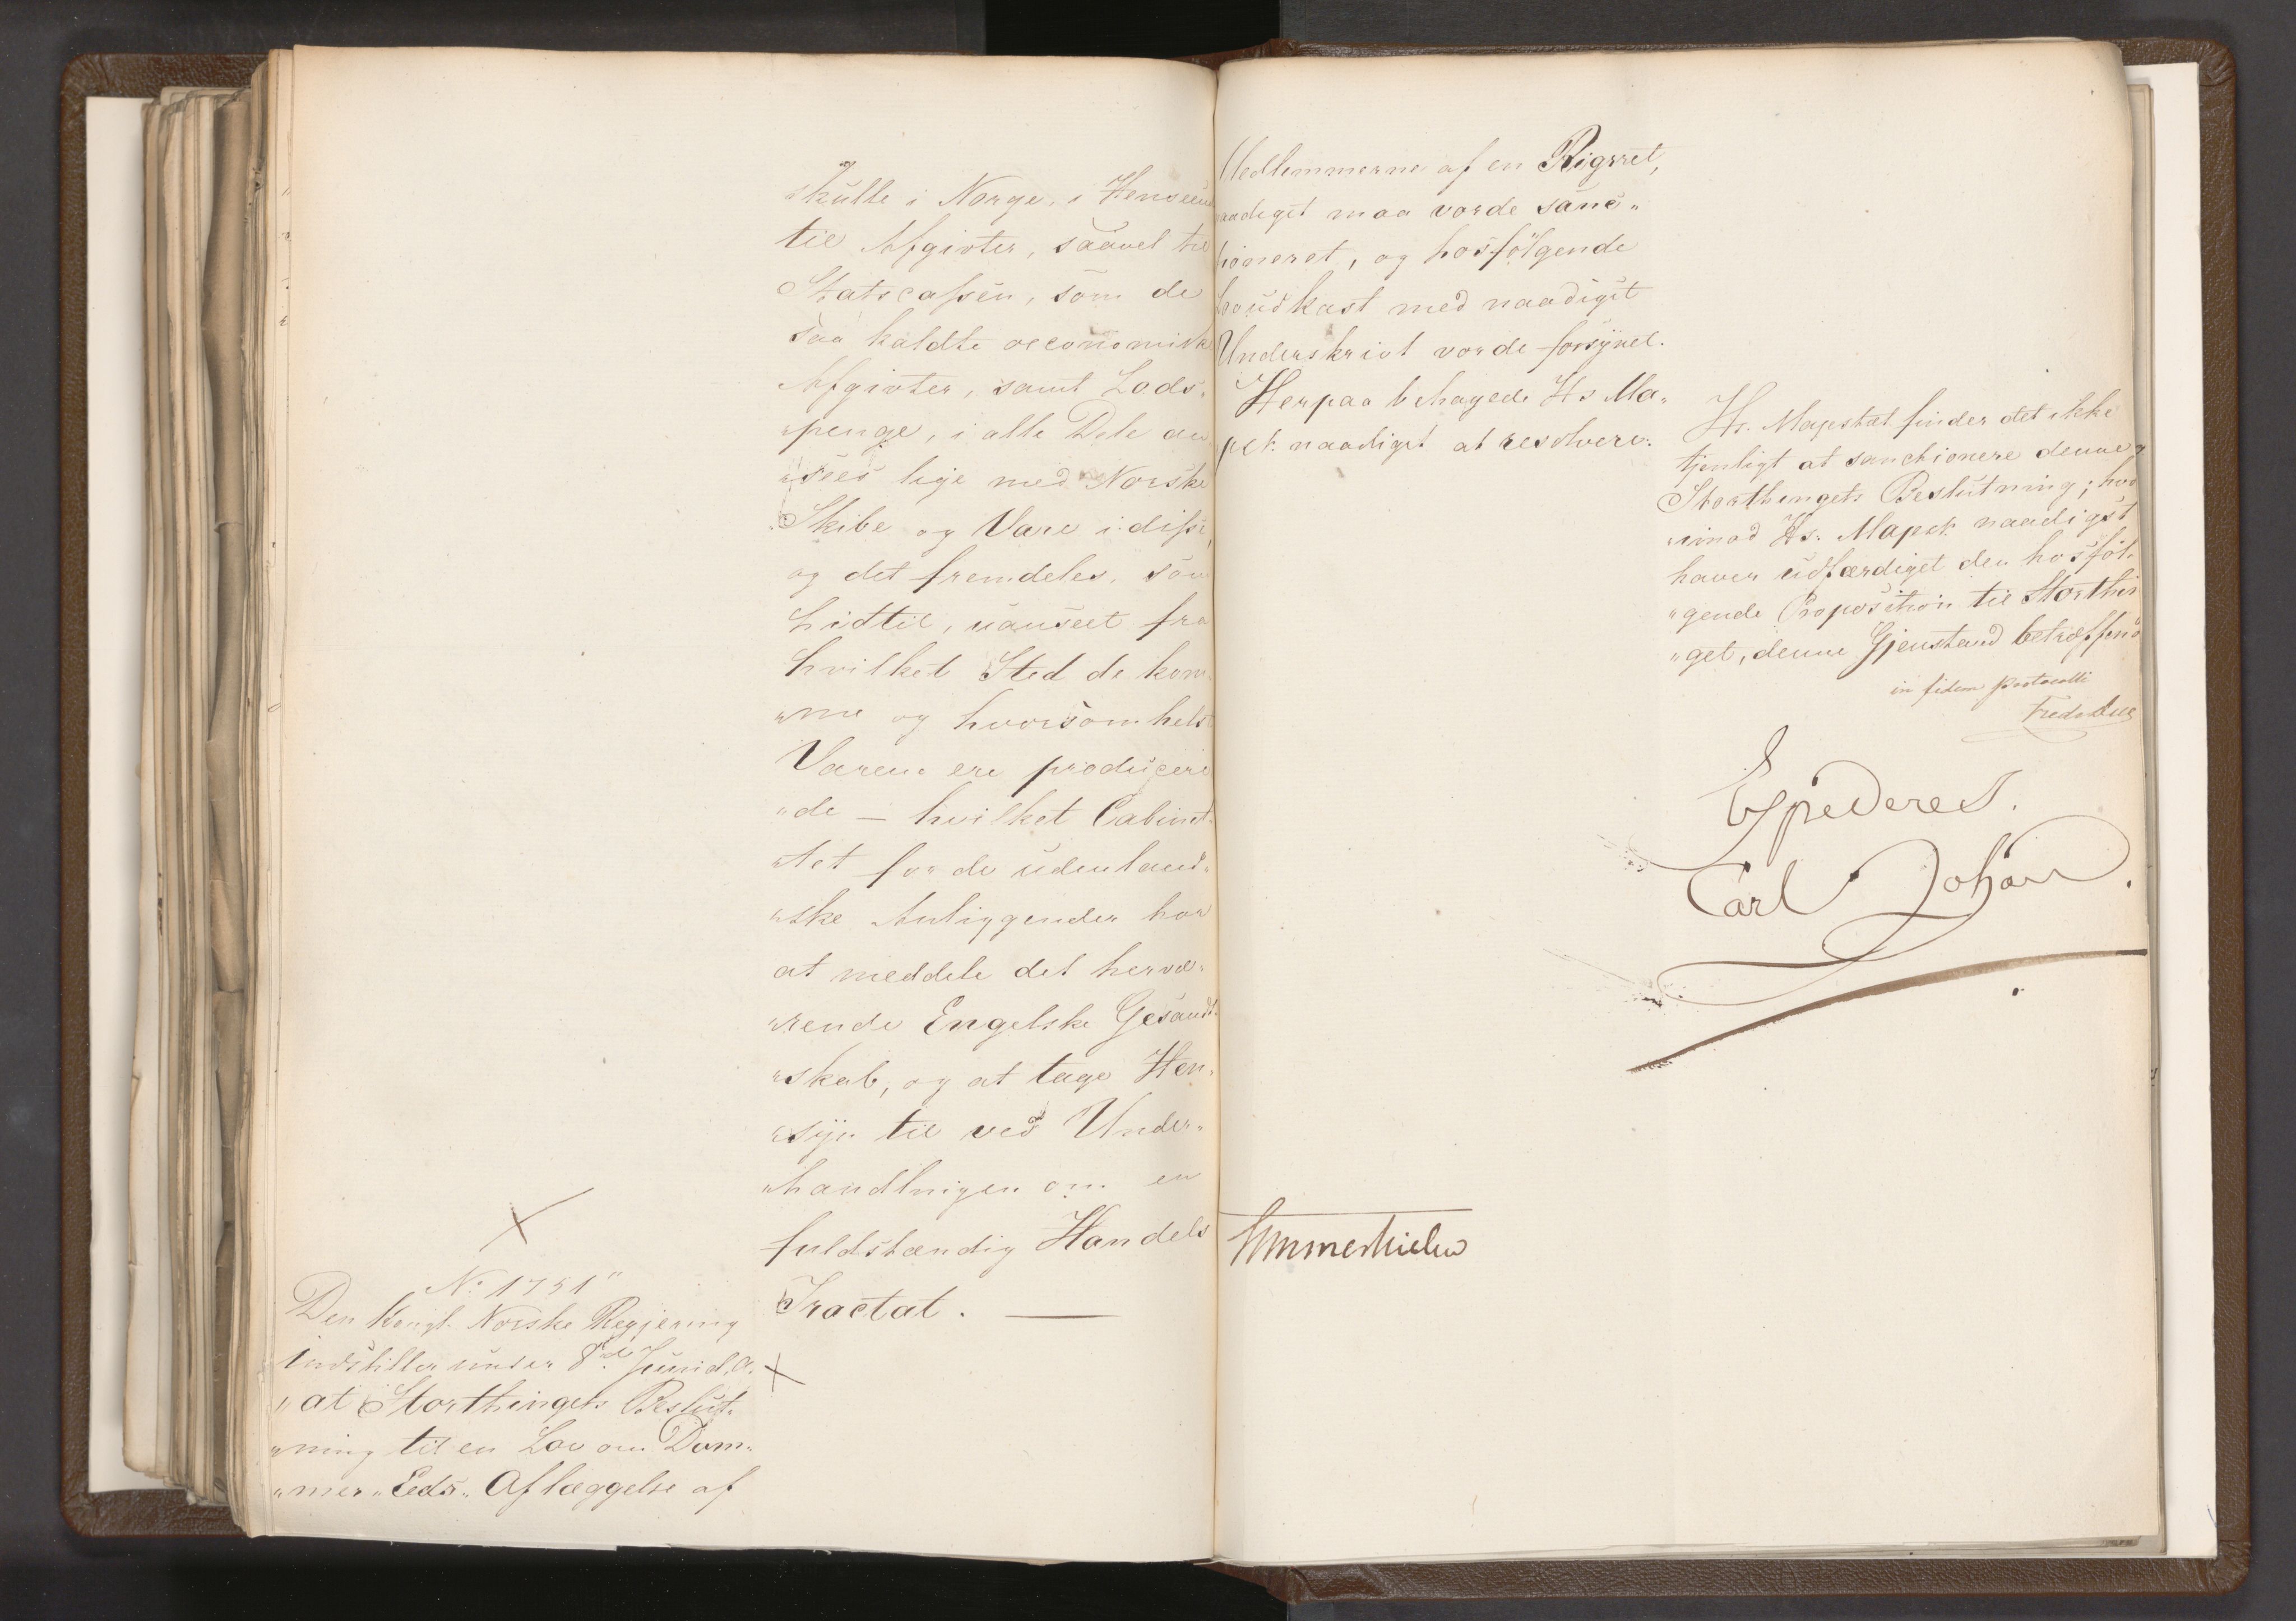 skulle i Norge, i Henseende
til Afgivter, saavel til
Statscassen, som de
saa kaldte oeconomiske
Afgivter, samt Lods„
„penge, i alle Dele an„
„sees lige med Norske
Skibe og Vare i disse,
og det fremdeles, som
hidtil, uanseet fra
hvilket Sted de kom„
„me og hvorsomhelst
Varene ere producere„
„de — hvilket Cabinet„
„tet for de udenland„
„ske Anliggender har
at meddele det hervæ„
„rende Engelske Gesandt„
„skab, og at tage Hen„
„syn til ved Under„
„handlingen om en
fuldstændig Handels
Tractat. —
No 1751
Den Kongl. Norske Regjering
indstiller under 8de Juni d. A.
„at Storthingets Beslut„
„ning til en Lov om Dom„
„mer„Eeds„Aflæggelse af
Medlemmerne af en Rigsret,
naadigst maa vorde sanc„
tioneret, og hosfölgende
Lovudkast med naadigst
Underskrivt vorde forsynet.
Herpaa behagede Hs Ma„
jest. naadigst at resolvere:
Hs. Majestæt finder det ikke
tjenligt at sanctionere denne
Storthingets Beslutning; hvor
„imod Hs. Majest. naadigst
haver udfærdiget den hosföl„
„gende Proposition til Storthin
„get, denne Gjenstand betræffend
in fidem protocolli
Fredr. Due
Expederes.
Carl Johan.